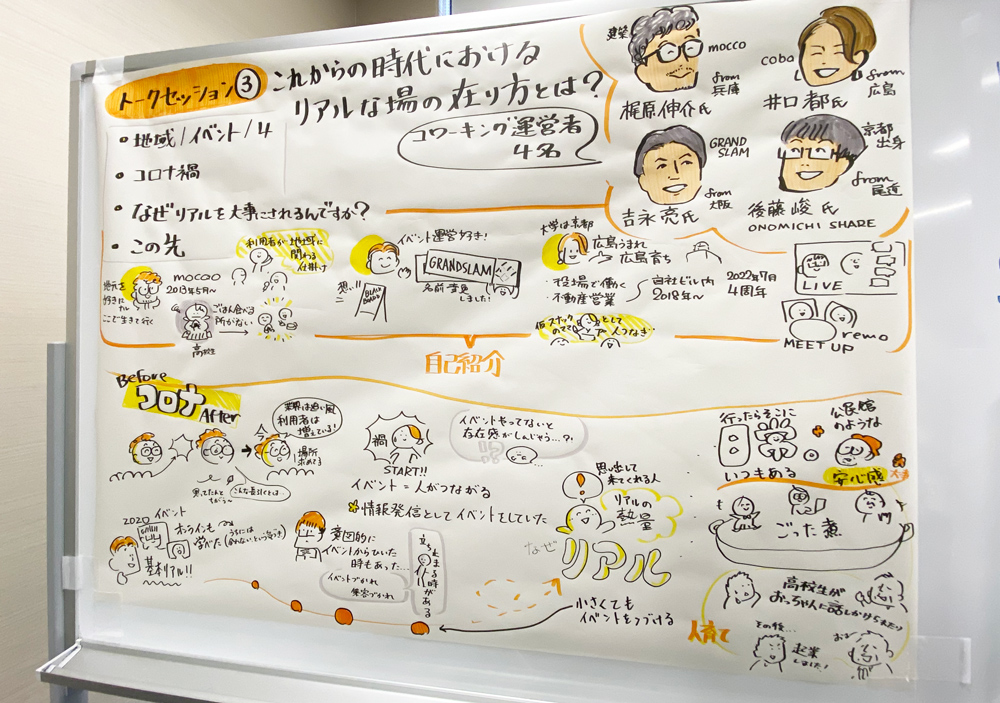 トークセッション③
これからの時代における
リアルな場の在り方とは?
コワーキング運営者
4名
・地域/イベント/4
・コロナ禍
・なぜリアルを大事にされるんですか?
・この先
建築
mocco
from
兵庫
梶原伸介氏
coba
from
広島
井口都氏
GRAND
SLAM
from
大阪
吉永亮氏
京都
出身
from
尾道
後藤峻氏
ONOMICHI SHARE
地元を
好きに
ここで生きて行く
mocco
2013年5月〜
利用者が地域に
関わる
仕掛け
ごはん食べる
所がない
高校生
イベント運営好き!
GRANDSLAM
名前変更
しました!
想い!!
BLACK
BOARD
大学は京都
広島うまれ
広島育ち
・役場で働く
・不動産営業
自社ビル内
2018年〜
2022年7月
4周年
仮スナック
のママ
として
人つなぎ
LIVE
MEET UP
remo
自己紹介
Before
コロナ
After
業界は追い風
利用者は
増えている!
今
場所
求めてる
思ってたんと
ちがう〜
2020 イベント
オンラインも
学べた
基本リアル!!
禍
START!!
イベントやってないと
存在感がしんじゃう…?
イベント=人がつながる
情報発信としてイベントをしていた
意図的に
イベントからひいた
時もあった…
イベントづかれ
集客づかれ
立ち止まる時がある
思い出して
来てくれる人
リアルの
熱量
なぜ
リアル
小さくても
イベントをつづける
行ったらそこに
いつもある
公民館
のような
安心感
ごった煮
高校生が
おっちゃんに話しかけられたり
人育て
その後…
起業
しました!
おお